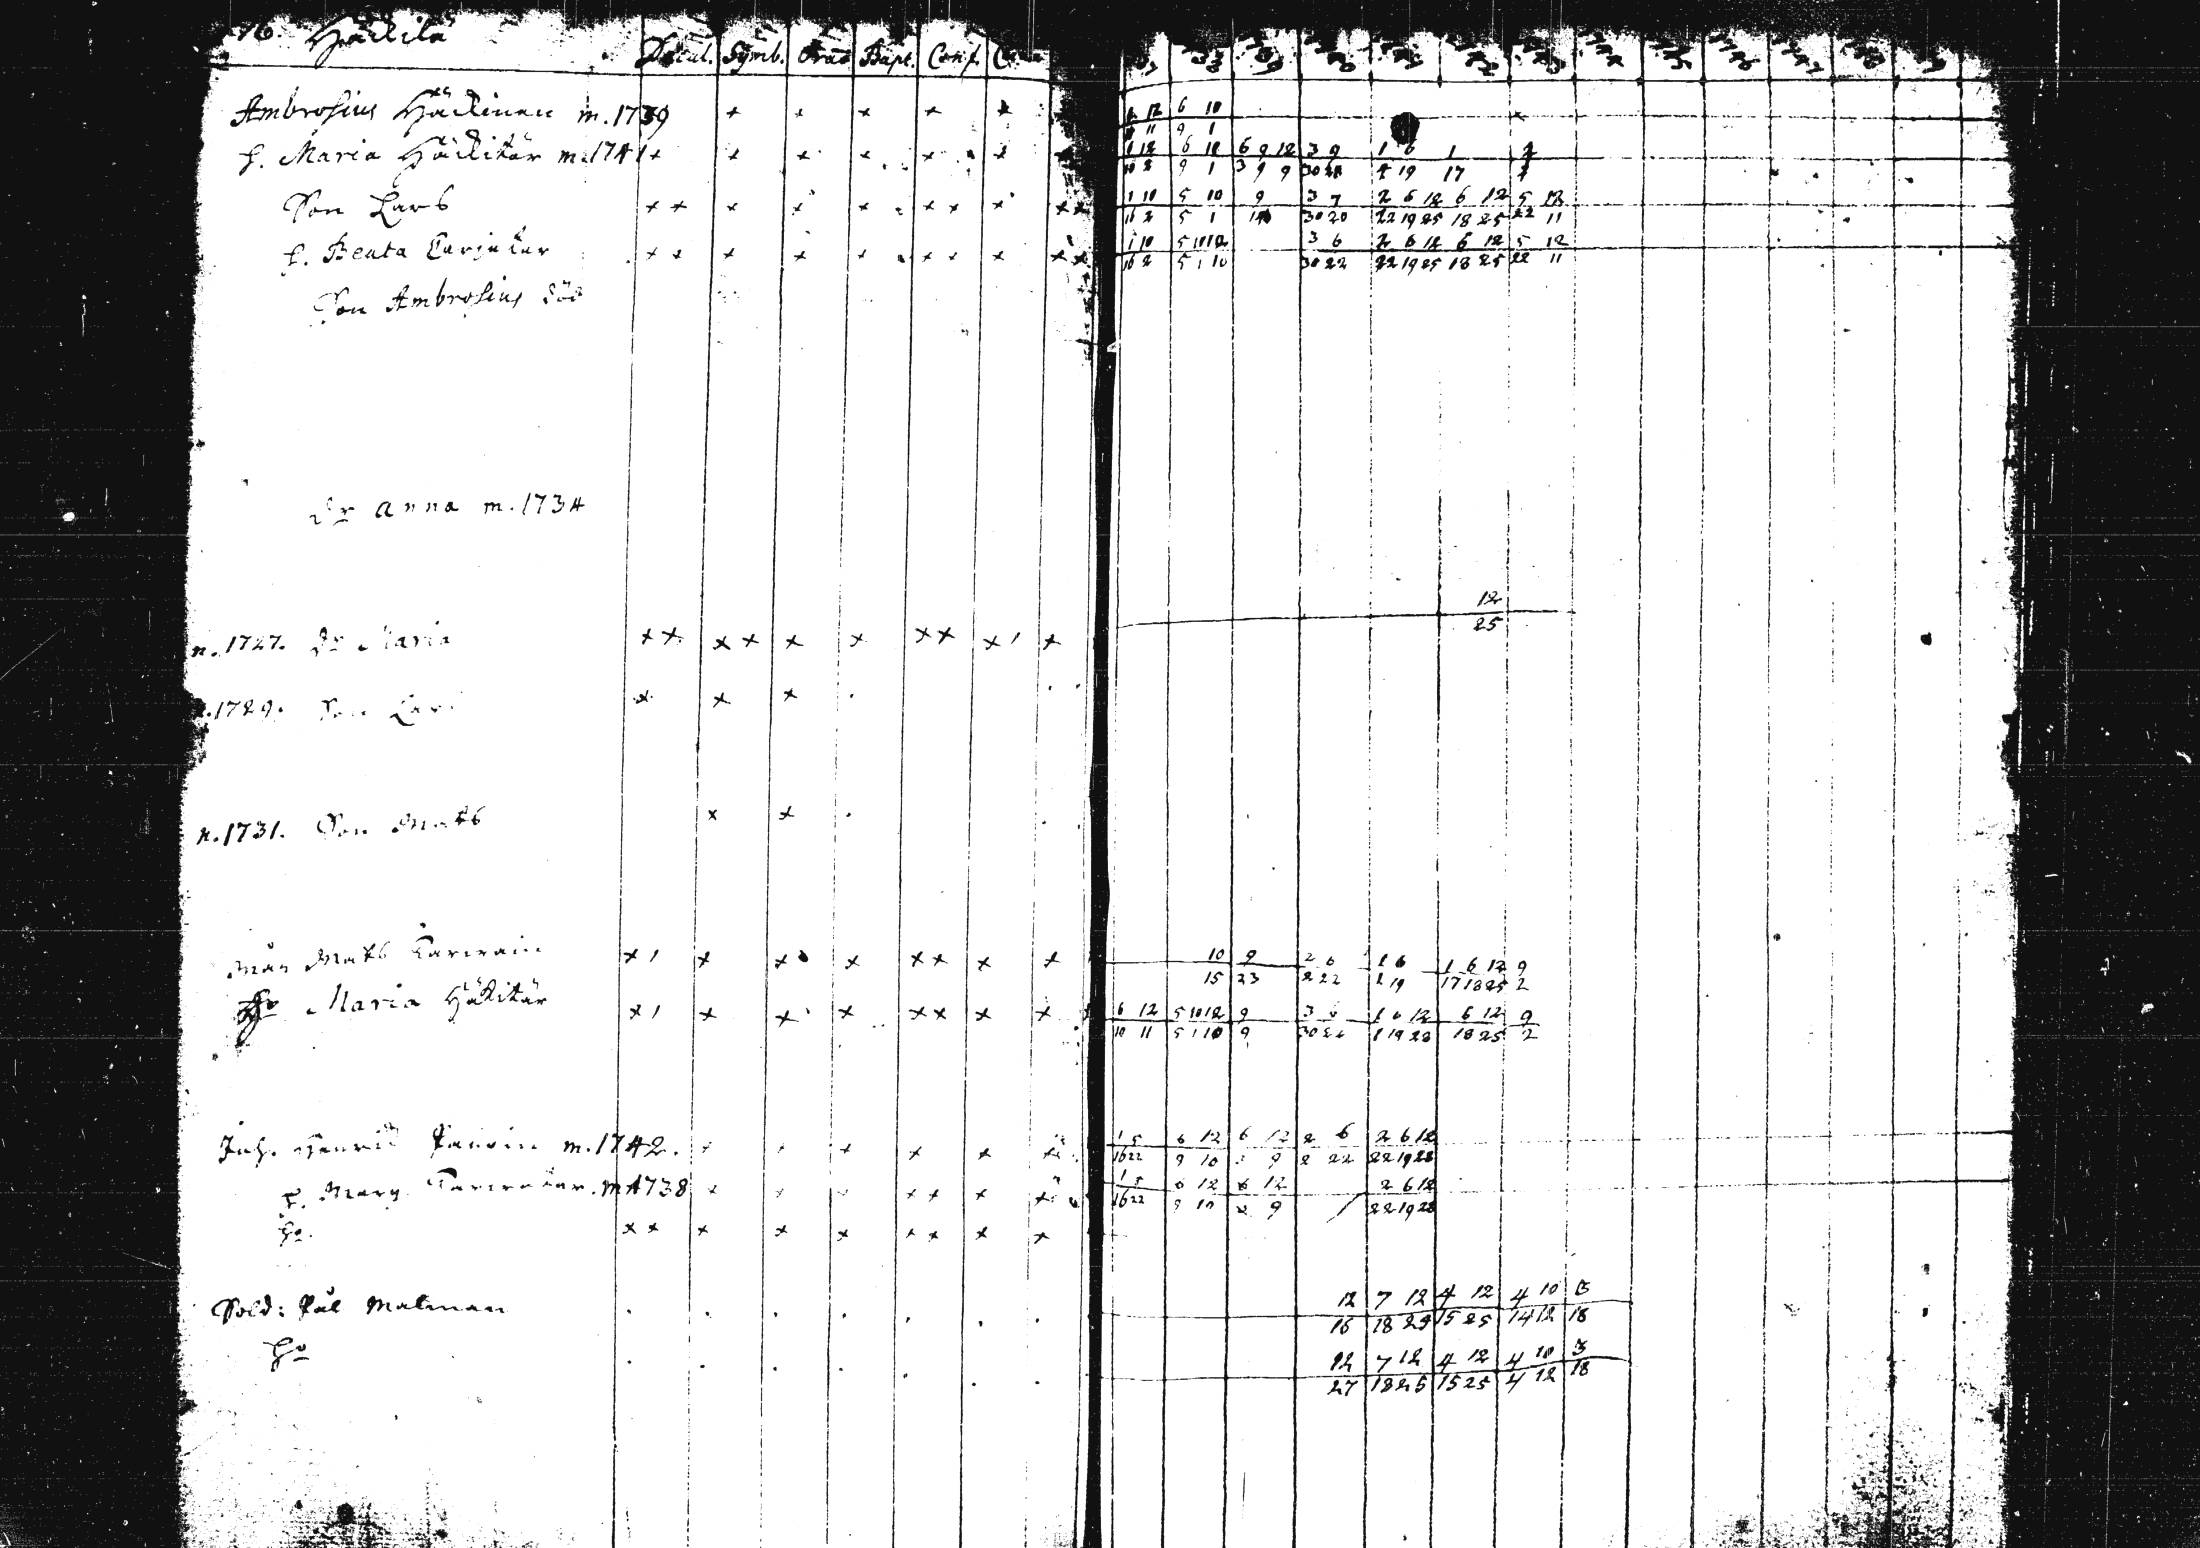 76. Häkkilä
Decal. Symb. Orat Bapt. Conf.
37 38 39 40 41 42 43 44 45 46 47 48 49
Ambrosius Häckinen m. 1739 + + + + +
1 12 6 10
11 9 1
h. Maria Häkitär m. 1741 + + + + + +
1 12 6 12 6 9 12 3 9 1 6 1
10 2 9 1 3 9 9 30 4 19 17
Son Lars ++ + + + ++ + ++
1 10 5 10 9 3 7 2 6 12 6 12 5 12
16 2 5 1 30 20 22 19 25 18 25 22 11
h. Beata ++ + + + ++ + ++
1 10 5 10 12 3 6 2 6 12 6 12 5 12
16 2 5 1 10 30 22 22 19 25 18 25 22 11
Son Ambrosius död
dr Anna m. 1734
n. 1727. dr Maria ++ ++ + + ++ + +
12
25
n. 1729. Son Lars + + +
n. 1731. Son Mats + +
Mån Mats + + + + ++ + +
10 9 2 6 1 6 1 6 12 9
15 23 2 22 1 19 17 18 25 2
Ho Maria Häkitär + + + + ++ + +
6 12 5 10 12 9 3 6 1 6 12 6 12 9
10 11 5 1 10 9 30 22 1 19 28 18 25 2
Inh. Henric m. 1742. + + + + +
1 5 6 12 6 12 2 6 2 6 12
16 22 9 10 9 2 22 22 19 28
h. Marg. m. 1738 + + + ++ + +
1 5 6 12 6 12 2 6 12
16 22 9 10 2 9 22 19 28
ho. ++ + + + ++ + +
Sold: Pål Malman
12 7 12 4 12 4 10 3
16 18 29 15 25 14 12 18
Ho
12 7 12 4 12 4 10 3
27 18 25 15 25 4 12 18